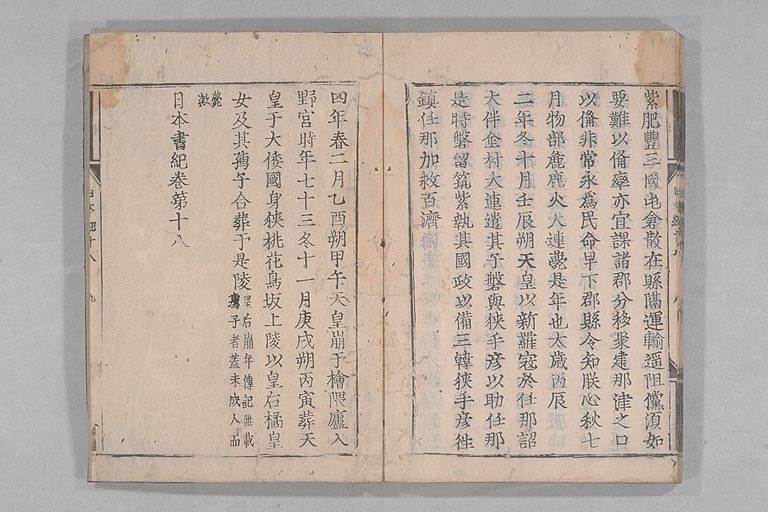 紫肥豊三國屯倉散在縣隔運輸遥阻儻須如
要難以備率亦宜課諸郡分移聚建那津之口
以備非常永爲民命早下郡縣令知朕心秋七
月物部麁鹿火大連薨是年也太歳丙辰
二年冬十月壬辰朔天皇以新羅寇於任那詔
大伴金村大連遣其子磐與狹手彦以助任那
是時磐留筑紫執其國政以備三韓狹手彦徃
鎮任那加救百濟
四年春二月乙酉朔甲午天皇崩于檜隈廬入
野宮時年七十三冬十一月庚戌朔丙寅葬天
皇于大倭國身狹桃花鳥坂上陵以皇后橘皇
女及其孺子合葬于是陵皇后崩年傳記無載
孺子者蓋未成人而
薨歟
日本書紀卷第十八